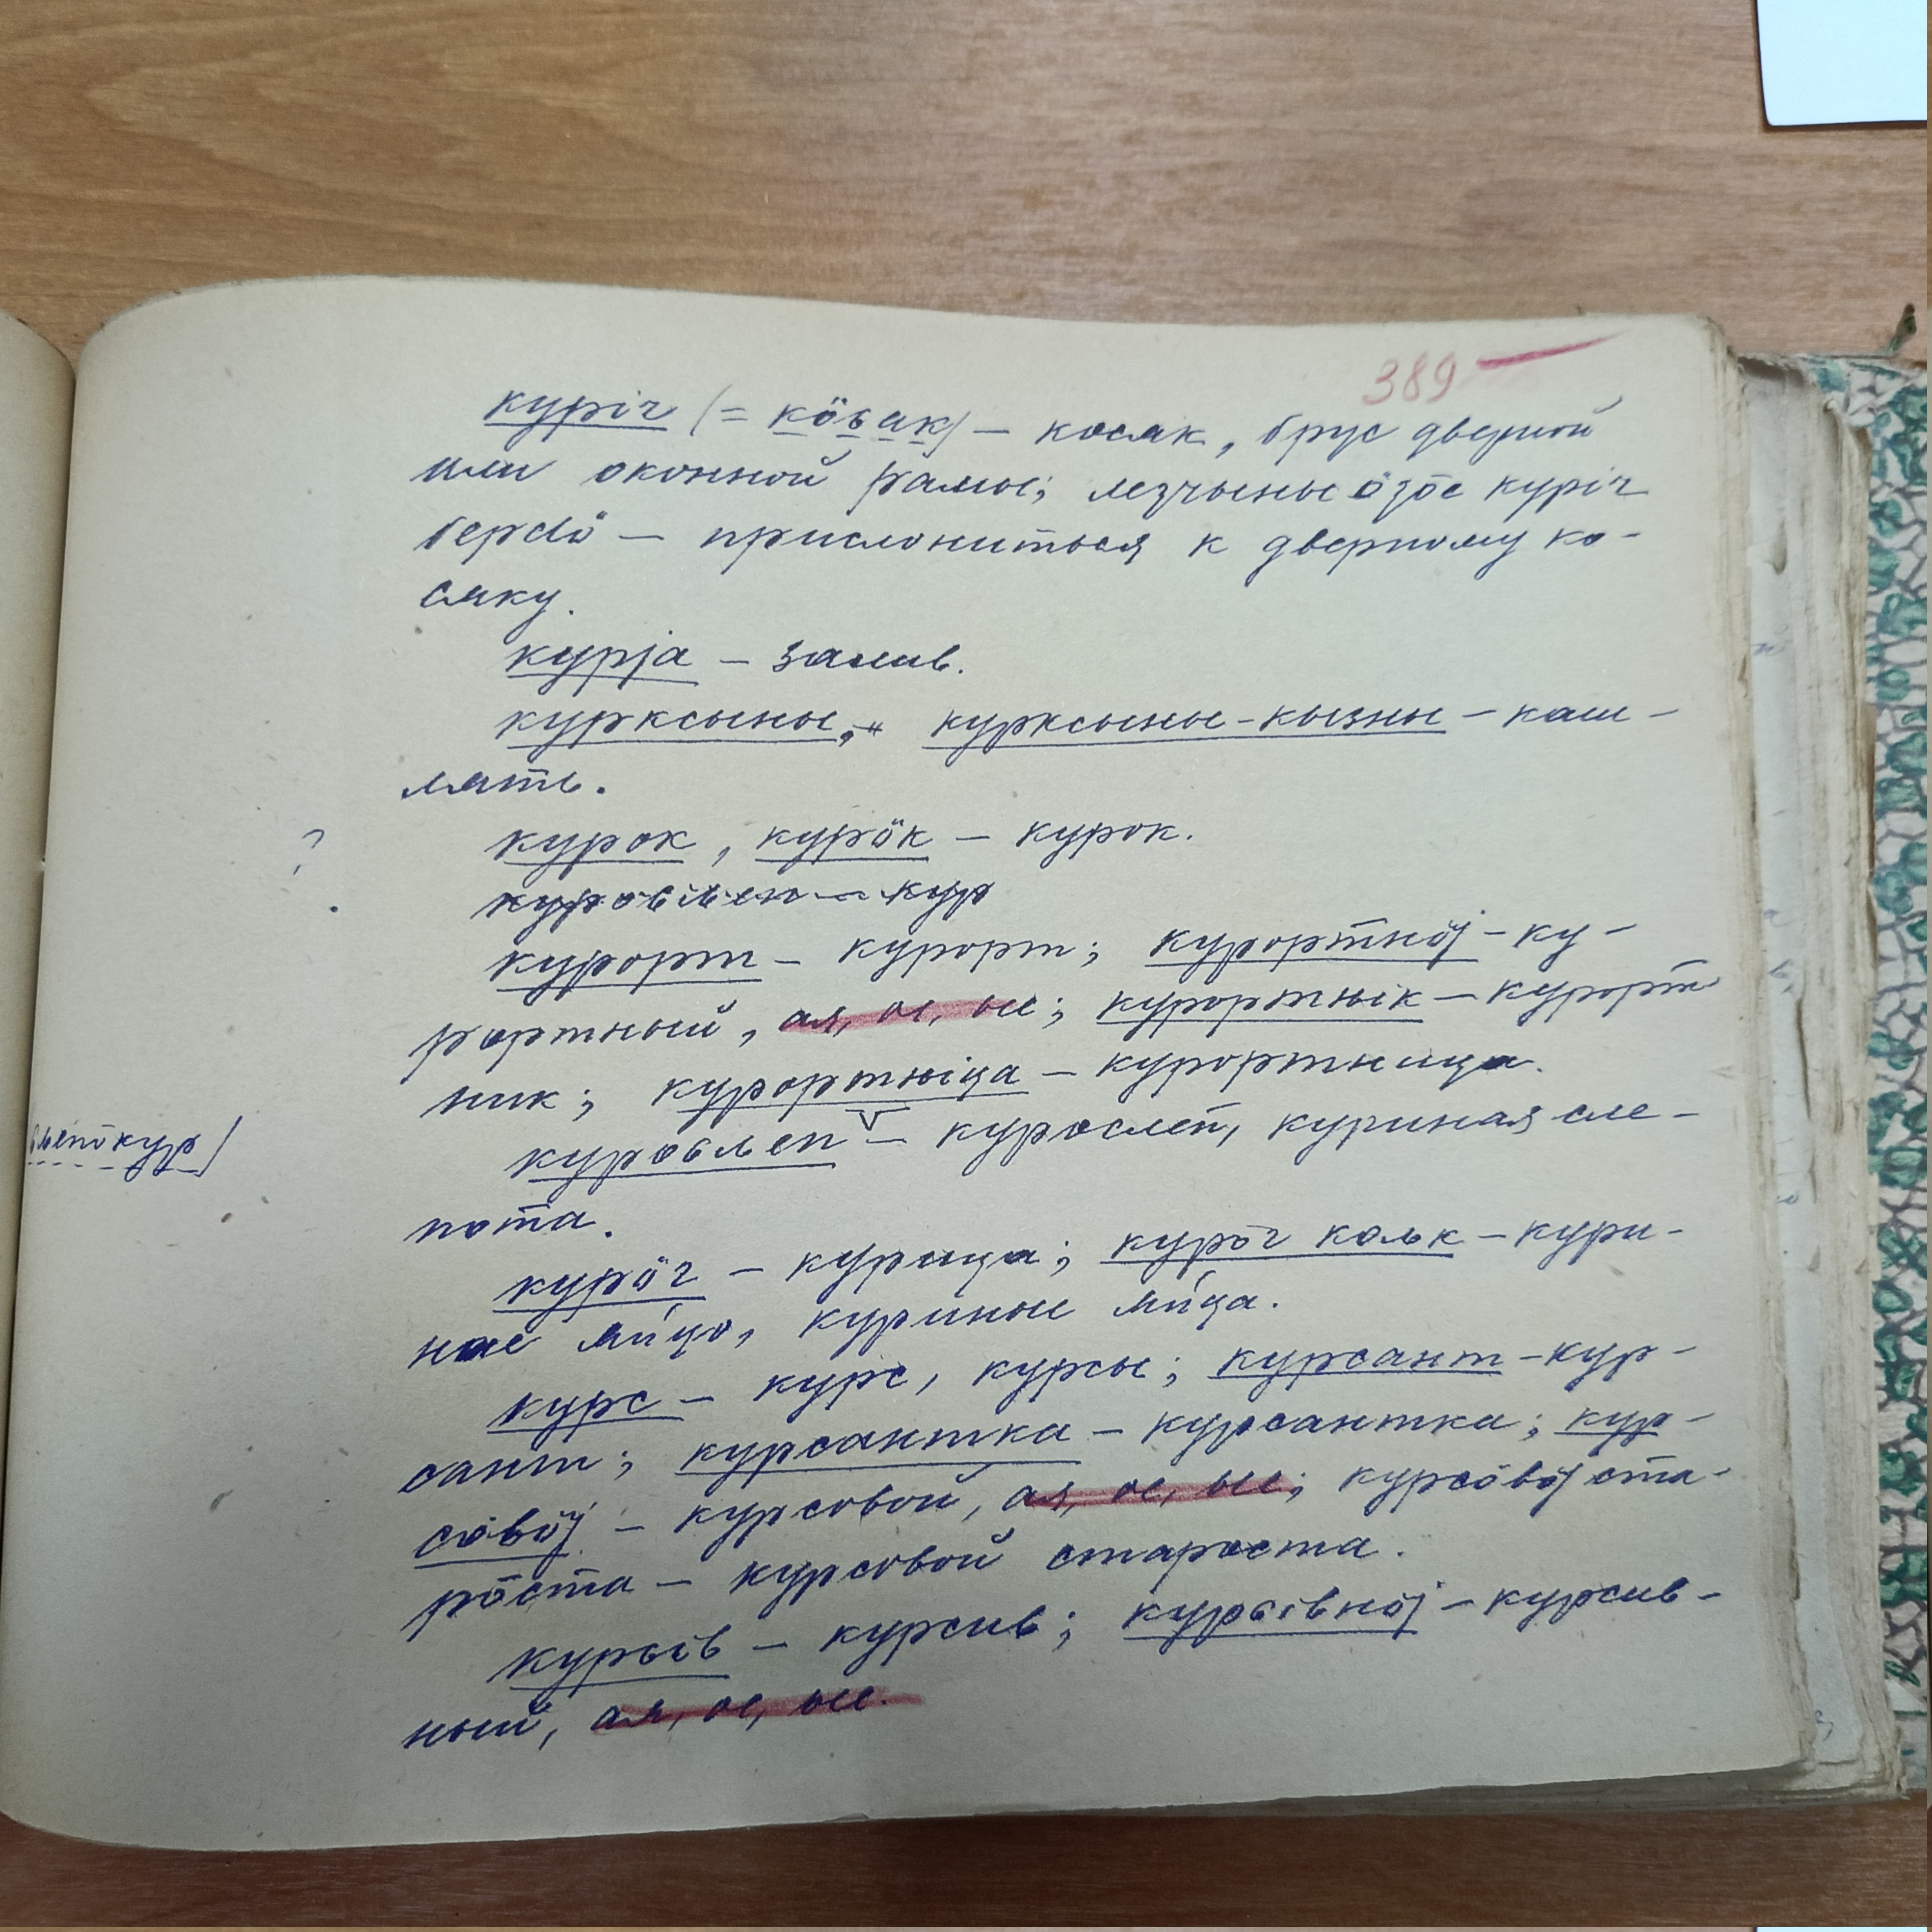 389
куріч (= кöԍак) – косяк, брус дверной
или оконной рамы; лезчыны öзöс куріч
бердö – прислониться к дверному ко-
сяку.
курја – залив.
курксыны, курксыны-кызны – каш-
лять.
? курок, курöк – курок.
курорт – курорт; курортнöј – ку-
рортный, ая, ое, ые; курортнік – курорт
ник; курортніца – курортница.
куроԍлеп – курослеп, куриная сле-
пота.
курöг – курица; курöг кольк – кури-
ное яйцо, куриные яйца.
курс – курс, курсы; курсант – кур-
сант; курсантка – курсантка; кур-
сöвöј – курсовой, ая, ое, ые; курсöвöј ста-
рöста – курсовой староста.
курԍів – курсив; курԍівнöј – курсив-
ный, ая, ое, ые.